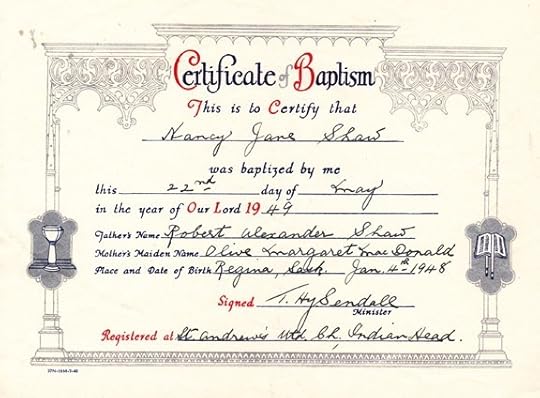 Certificate of Baptism
This is to Certify that
Nancy Jane Shaw
was baptized by me
this 22nd day of May
in the year of Our Lord 1949
Father's Name Robert Alexander Shaw
Mother's Maiden Name Olive Margaret MacDonald
Place and Date of Birth Regina, Sask. Jan. 4th 1948
Signed T. Hy Sendall
Minister
Registered at St. Andrew's Utd. Ch. Indian Head.